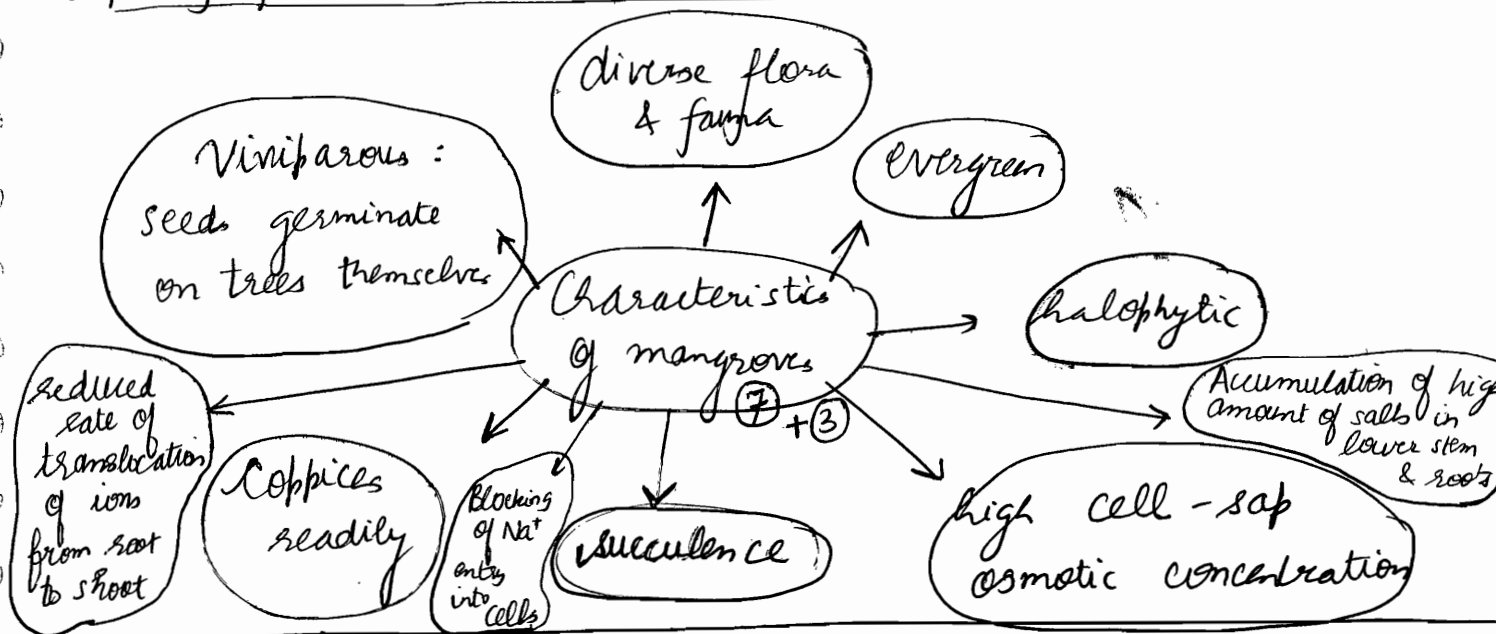 diverse flora
& fauna
evergreen
Viniparous :
seeds germinate
on trees themselves
Characteristics
of mangroves
7 + 3
halophytic
Accumulation of hig
amount of salts in
lower stem
& roots
reduced
rate of
translocation
of ions
from root
to shoot
Coppices
readily
Blocking
of Na⁺
entry
into
cells
succulence
high cell-sap
osmotic concentration